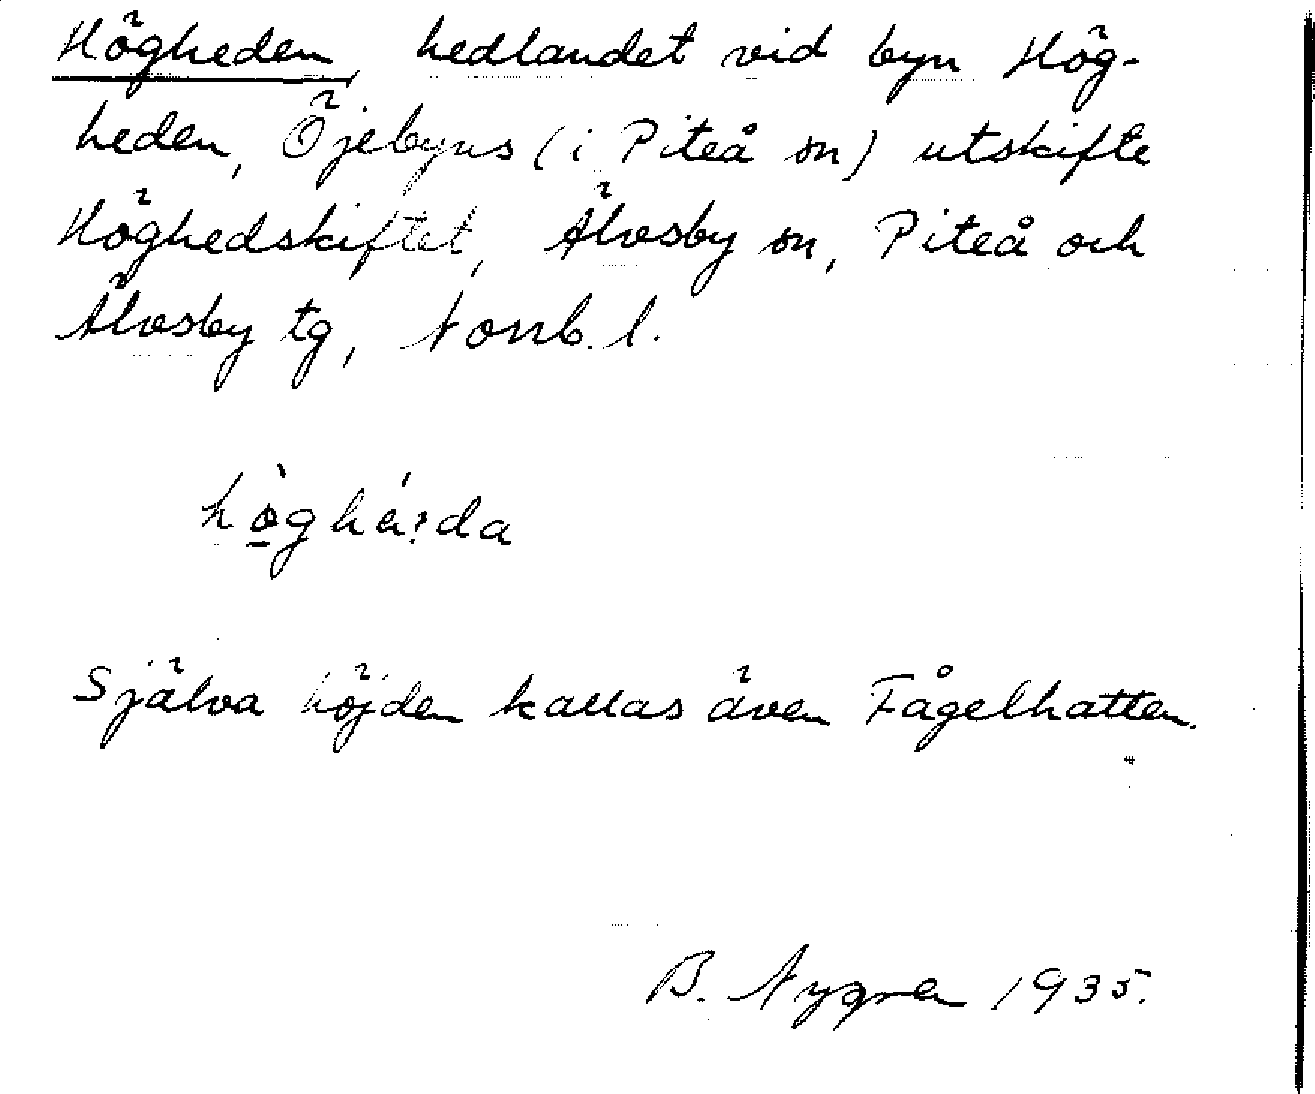 Högheden, hedlandet vid byn Hög-
heden, Öjebyns (i Piteå sn) utskifte
Höghedskiftet, Älvsby sn, Piteå och
Älvsby tg, Norrb. l.
Själva höjden kallas även Fågelhatten.
B. Nygren 1935.